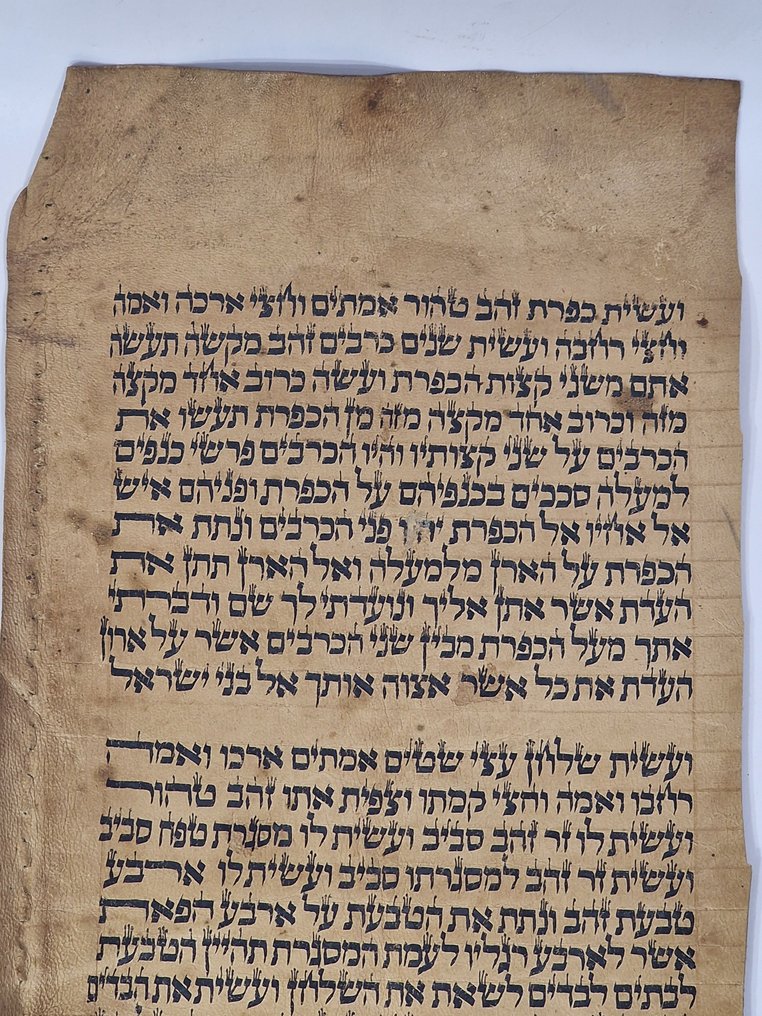 ועשית כפרת זהב טהור אמתים וחצי ארכה ואמה
וחצי רחבה ועשית שנים כרבים זהב מקשה תעשה
אתם משני קצות הכפרת ועשה כרוב אחד מקצה
מזה וכרוב אחד מקצה מזה מן הכפרת תעשו את
הכרבים על שני קצותיו והיו הכרבים פרשי כנפים
למעלה סככים בכנפיהם על הכפרת ופניהם איש
אל אחיו אל הכפרת יהיו פני הכרבים ונתת את
הכפרת על הארן מלמעלה ואל הארן תתן את
העדת אשר אתן אליך ונועדתי לך שם ודברתי
אתך מעל הכפרת מבין שני הכרבים אשר על ארון
העדת את כל אשר אצוה אותך אל בני ישראל
ועשית שלחן עצי שטים אמתים ארכו ואמה
רחבו ואמה וחצי קמתו וצפית אתו זהב טהור
ועשית לו זר זהב סביב ועשית לו מסגרת טפח סביב
ועשית זר זהב למסגרתו סביב ועשית לו ארבע
טבעת זהב ונתת את הטבעת על ארבע הפאת
אשר לארבע רגליו לעמת המסגרת תהיין הטבעת
לבתים לבדים לשאת את השלחן ועשית את הבדים